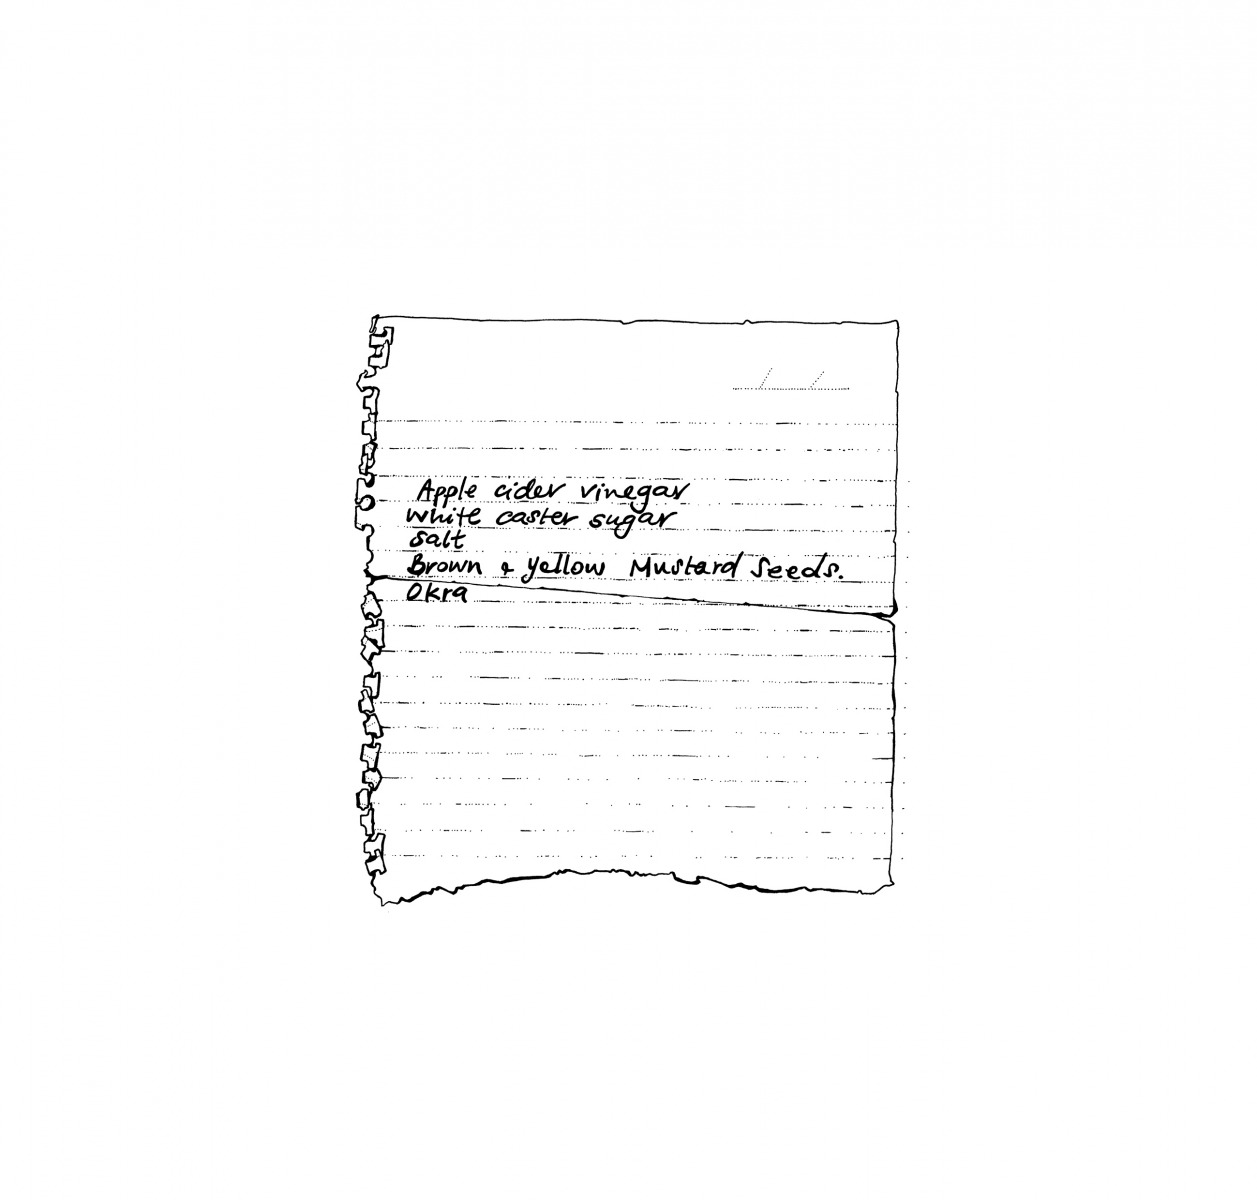 Apple cider vinegar
white caster sugar
salt
Brown & yellow Mustard Seeds.
Okra